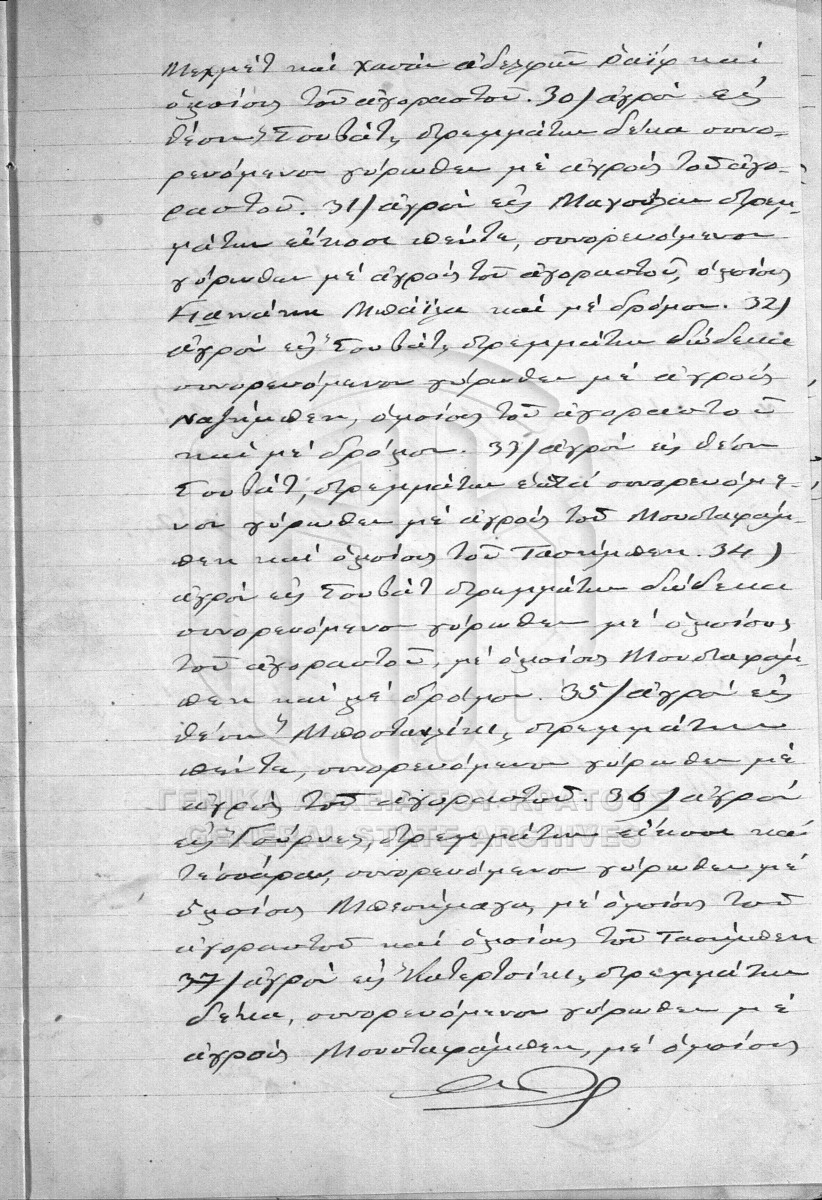 Μεχμέτ καί Χασάν ἀδελφῶν Ραΐφ καί
ὁμοίους τοῦ ἀγοραστοῦ. 30/ ἀγρόν εἰς
θέσιν "Σουβάτ", στρεμμάτων δέκα συνο-
ρευόμενον γύρωθεν μέ ἀγρούς τοῦ ἀγο-
ραστοῦ. 31/ ἀγρόν εἰς Μαγούλαν στρεμ-
μάτων εἴκοσι πέντε, συνορευόμενον
γύρωθεν μέ ἀγρούς τοῦ ἀγοραστοῦ, ὁμοίους
Γιαννάκη Μπάϊλα καί μέ δρόμον. 32)
ἀγρόν εἰς "Σουβάτ", στρεμμάτων δώδεκα
συνορευόμενον γύρωθεν μέ ἀγρούς
Ναζήμπεη, ὁμοίους τοῦ ἀγοραστοῦ
καί μέ δρόμον. 33/ ἀγρόν εἰς θέσιν
Σουβάτ, στρεμμάτων ἑπτά συνορευόμε-
νον γύρωθεν μέ ἀγρούς τοῦ Μουσταφάμ-
πεη καί ὁμοίους τοῦ Τασήμπεη. 34)
ἀγρόν εἰς Σουβάτ στρεμμάτων δώδεκα
συνορευόμενον γύρωθεν μέ ὁμοίους
τοῦ ἀγοραστοῦ, μέ ὁμοίους Μουσταφάμ-
πεη καί μέ δρόμον. 35/ ἀγρόν εἰς
θέσιν "Μποστανλίκι", στρεμμάτων
πέντε, συνορευόμενον γύρωθεν μέ
ἀγρούς τοῦ ἀγοραστοῦ. 36/ ἀγρόν
εἰς "Γούρνες", στρεμμάτων εἴκοσι καί
τεσσάρων, συνορευόμενον γύρωθεν μέ
ὁμοίους Μπεσήμαγα, μέ ὁμοίους τοῦ
ἀγοραστοῦ καί ὁμοίους τοῦ Τασήμπεη
37/ ἀγρόν εἰς "Κατερτσίκι", στρεμμάτων
δέκα, συνορευόμενον γύρωθεν μέ
ἀγρούς Μουσταφάμπεη, μέ ὁμοίους
ΓΕΝΙΚΑ ΑΡΧΕΙΑ ΤΟΥ ΚΡΑΤΟΥΣ
GENERAL STATE ARCHIVES